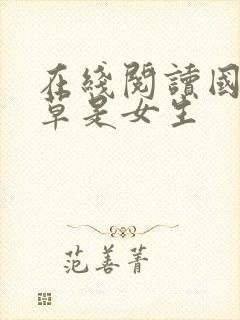 在綫閱讀國
草是女生
范善菁